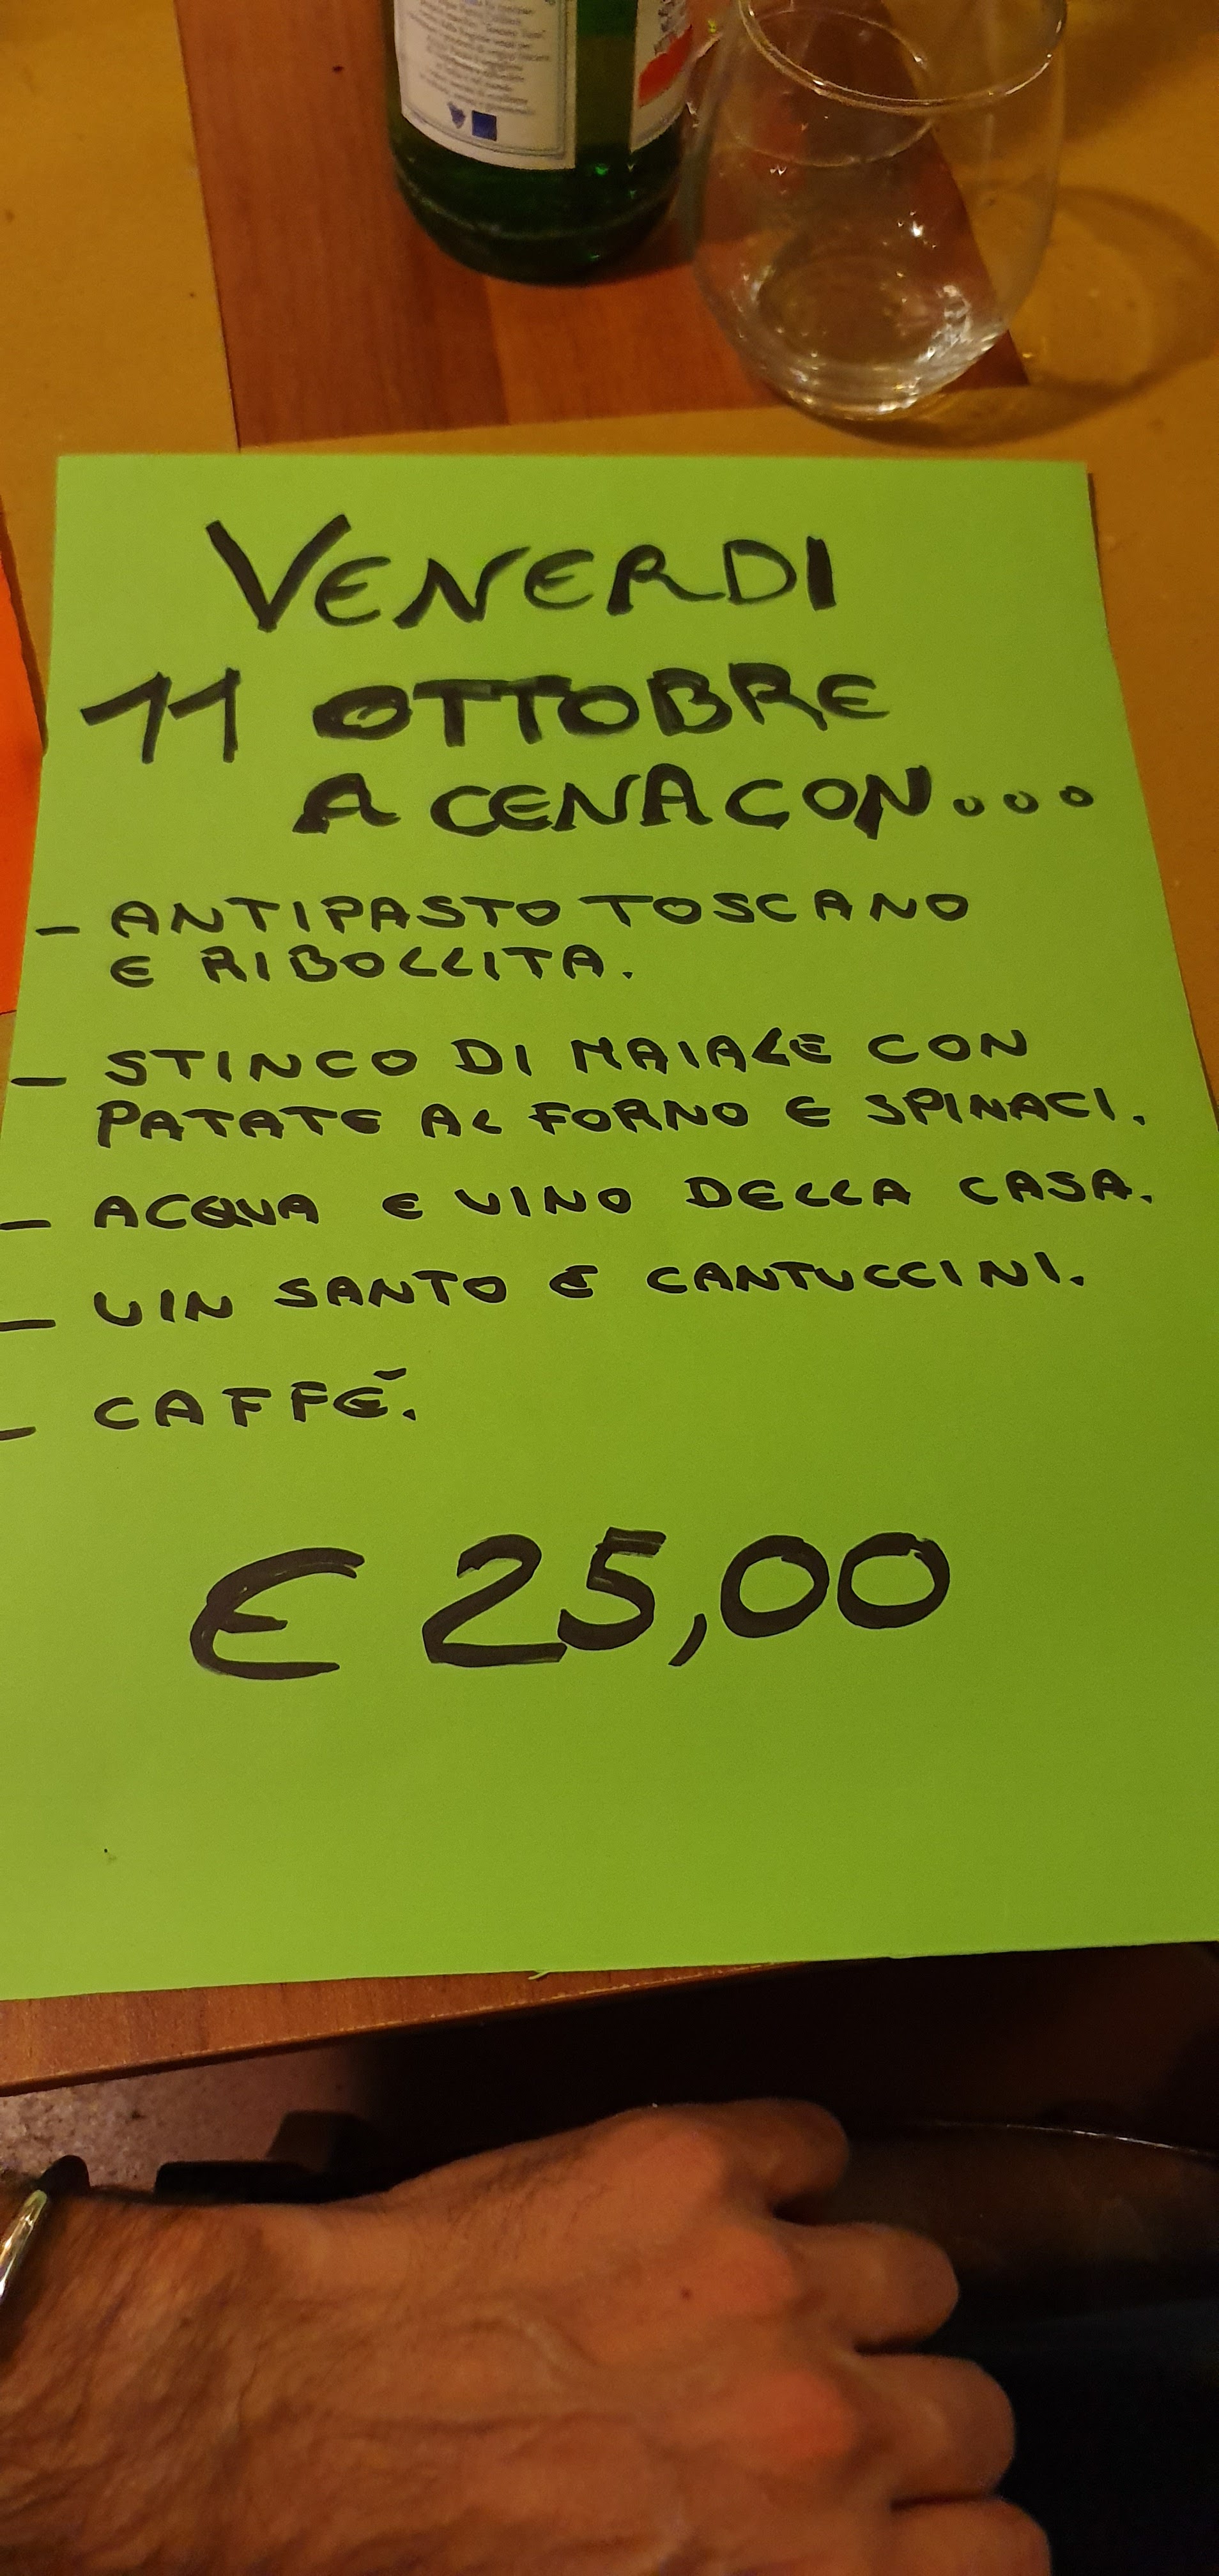 VENERDI
11 OTTOBRE
A CENA CON...
- ANTIPASTO TOSCANO
E RIBOLLITA.
- STINCO DI MAIALE CON
PATATE AL FORNO E SPINACI.
- ACQUA E VINO DELLA CASA.
- VIN SANTO E CANTUCCINI.
- CAFFÉ.
€ 25,00